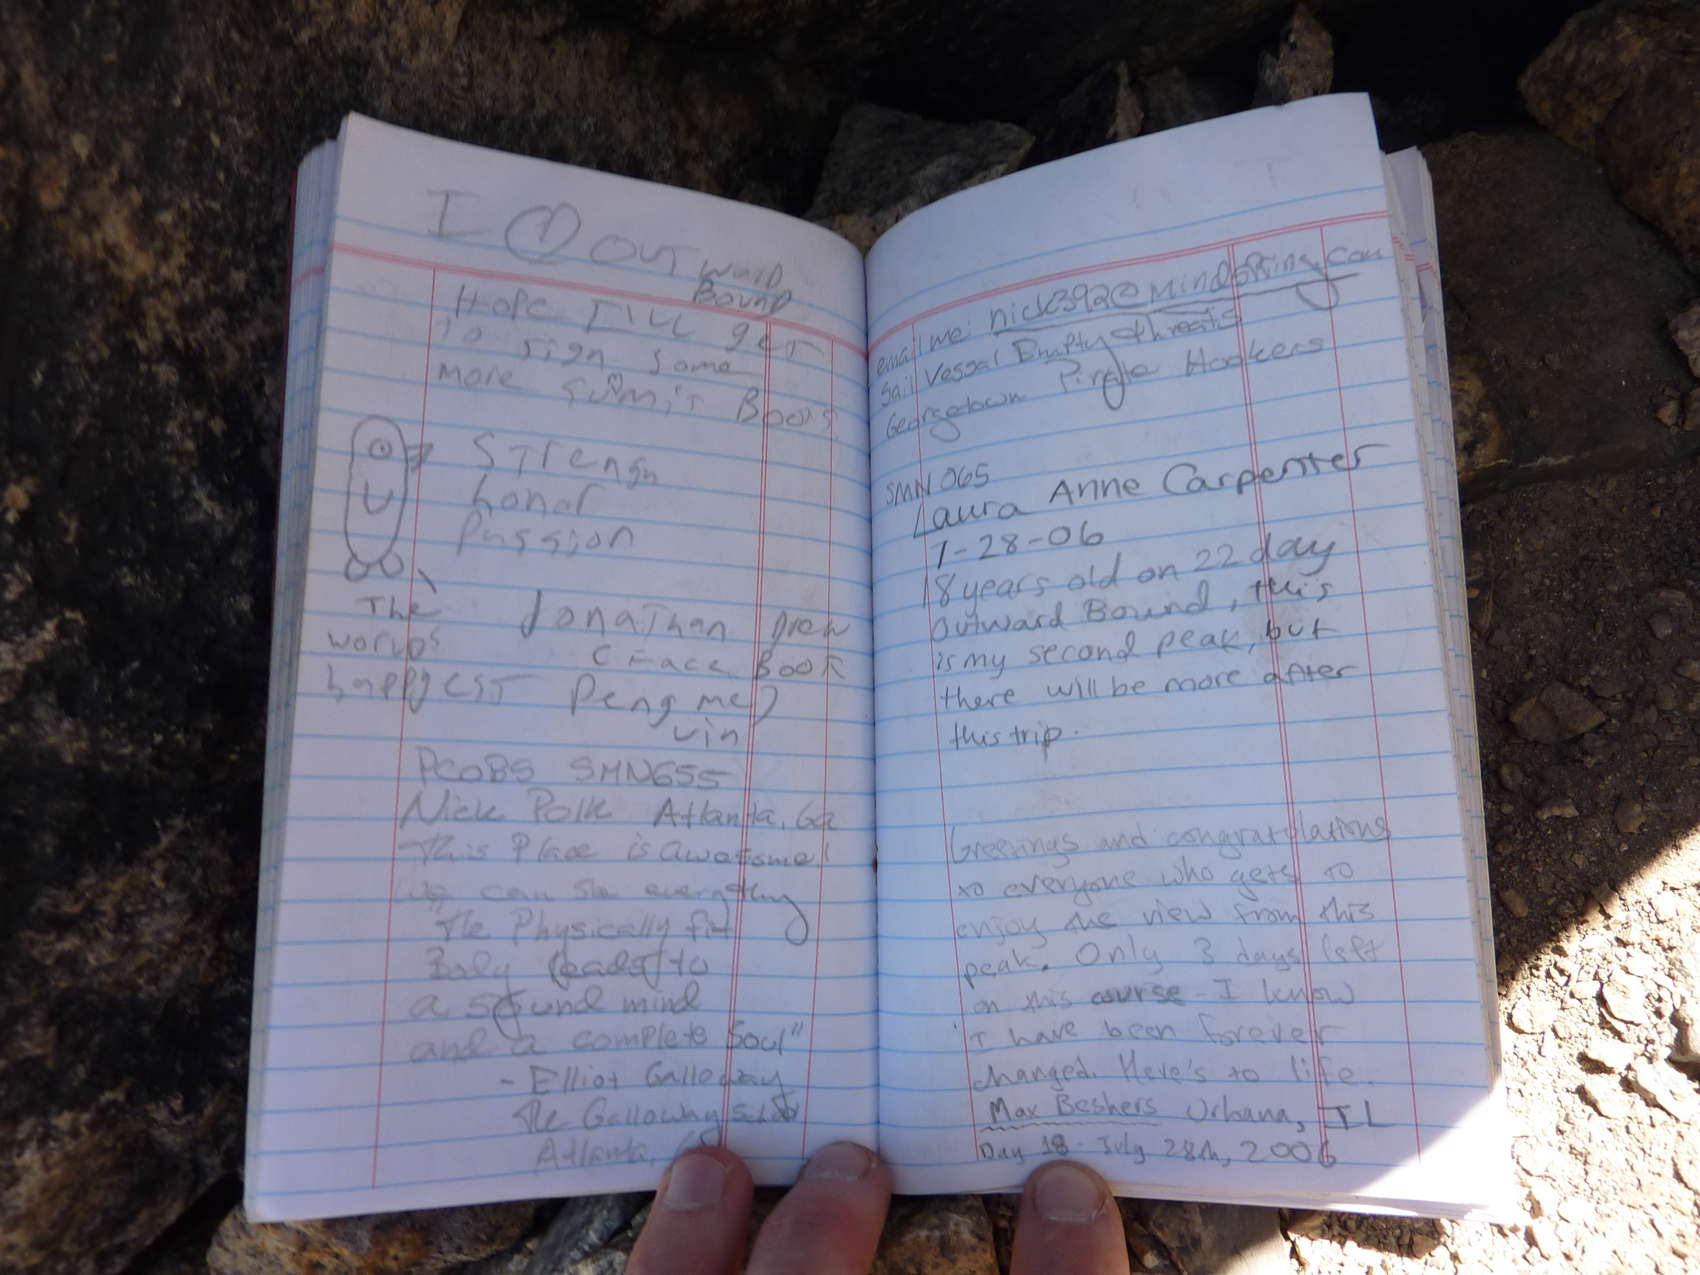 I OUT WARD
BOUND
Hope I'll get
to sign some
more summit Books.
Strengh
honor
Passion
The
world's
happyest
Jonathan Drew
(Face Book
Peng me)
PCOBS SMN655
Nick Polk Atlanta, Ga
This Place is awesome!
we can se everything
The Physically fit
Body leads to
a sound mind
and a complete Soul"
- Elliot Galloway
The Galloway School
Atlanta,
email me: nick392@mindspring.com
Sail Vessal Empty threats
Georgedown Pirate Hookers
SMN 065
Laura Anne Carpenter
7-28-06
18 years old on 22 day
Outward Bound, this
is my second peak, but
there will be more after
this trip.
Greetings and congratulations
to everyone who gets to
enjoy the view from this
peak. Only 3 days left
on this course - I know
I have been forever
changed. Here's to life.
Max Beshers Urbana, IL
Day 18 - July 28th, 2006